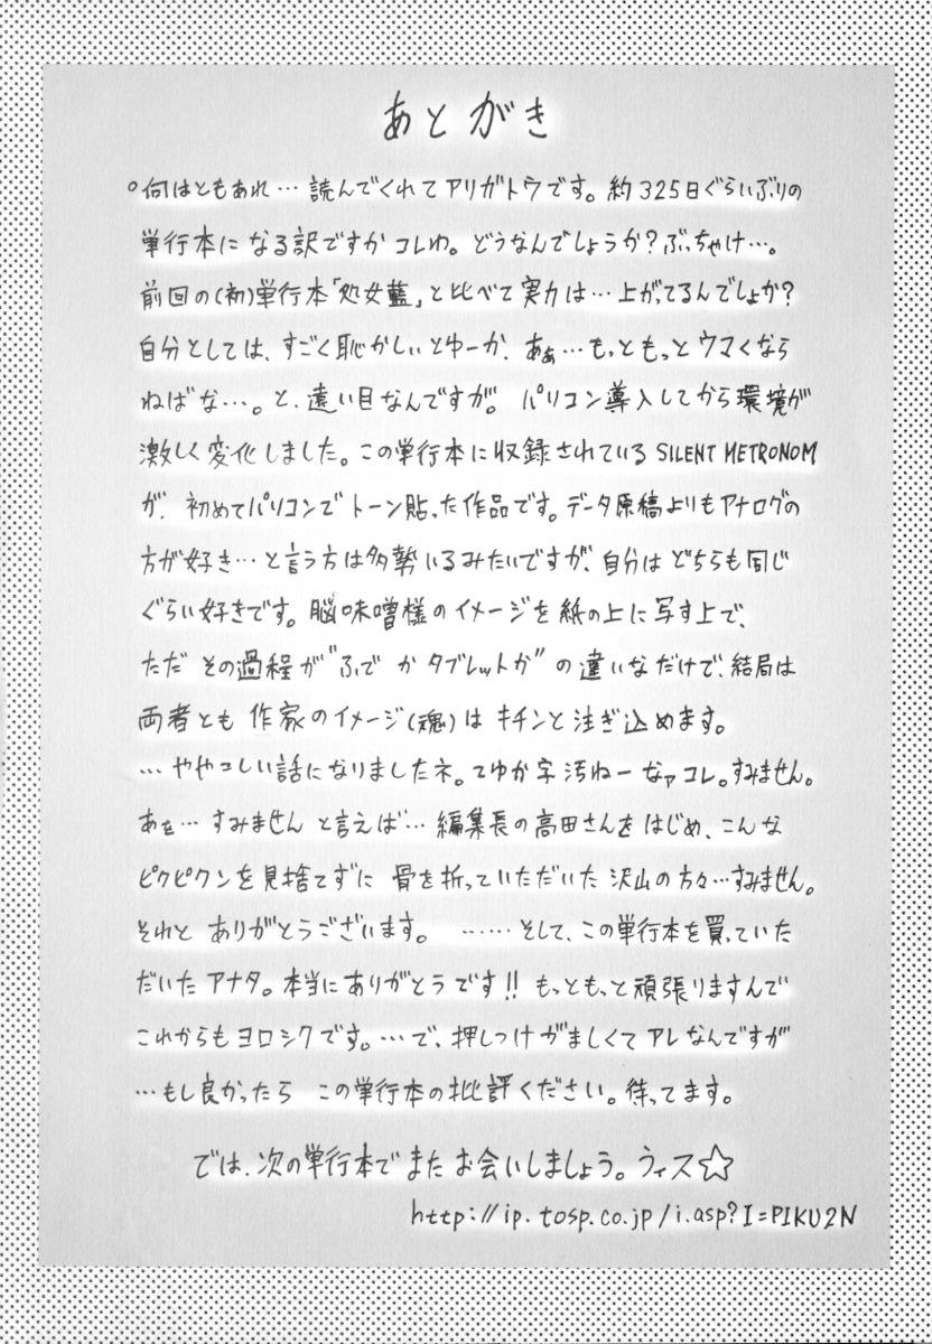 あとがき
○何はともあれ…読んでくれてアリガトウです。約325日ぐらいぶりの
単行本になる訳ですがコレわ。どうなんでしょうか?ぶっちゃけ…。
前回の(初)単行本「処女藍」と比べて実力は…上がってるんでしょか?
自分としては、すごく恥かしいとゆーか、あぁ…もっともっとウマくなら
ねばな…。と、遠い目なんですが。パソコン導入してから環境が
激しく変化しました。この単行本に収録されているSILENT METRONOM
が、初めてパソコンでトーン貼った作品です。データ原稿よりもアナログの
方が好き…と言う方は多勢いるみたいですが、自分はどちらも同じ
ぐらい好きです。脳味噌様のイメージを紙の上に写す上で、
ただその過程が"ふでかタブレットか"の違いなだけで、結局は
両者とも作家のイメージ(魂)はキチンと注ぎ込めます。
…ややっこしい話になりましたネ。てゆか字汚ねーなァコレ。すみません。
あぁ…すみませんと言えば…編集長の高田さんをはじめ、こんな
ピクピクンを見捨てずに骨を折っていただいた沢山の方々…すみません。
それとありがとうございます。……そして、この単行本を買っていた
だいたアナタ。本当にありがとうです!!もっともっと頑張りますんで
これからもヨロシクです。…で、押しつけがましくてアレなんですが
…もし良かったらこの単行本の批評ください。待ってます。
では、次の単行本でまたお会いしましょう。ウィス☆
http://ip.tosp.co.jp/i.asp?I=PIKU2N